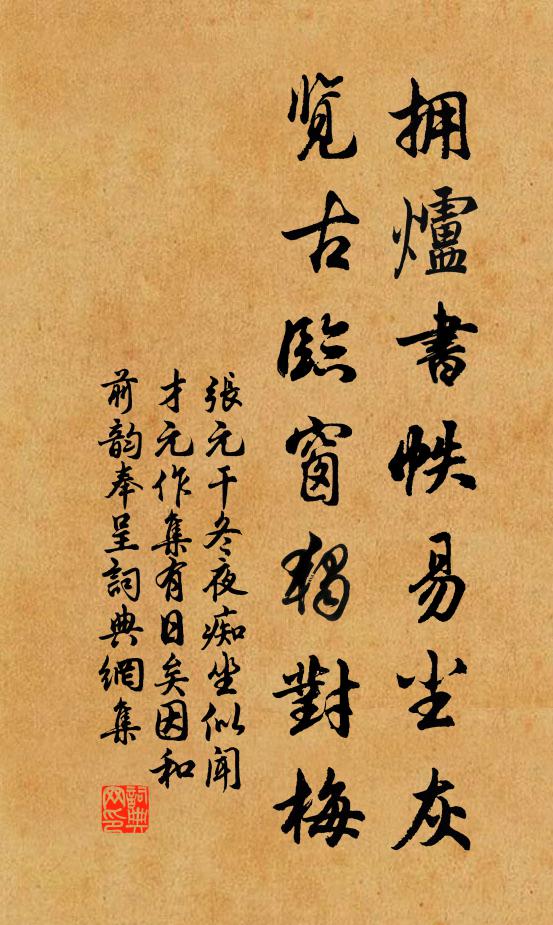 拥爐書帙易尘灰
覽古臨窗獨對梅
張元干冬夜痴坐似闻
才元作集有日矣因和
前韵奉呈詞典網集
詞典网印